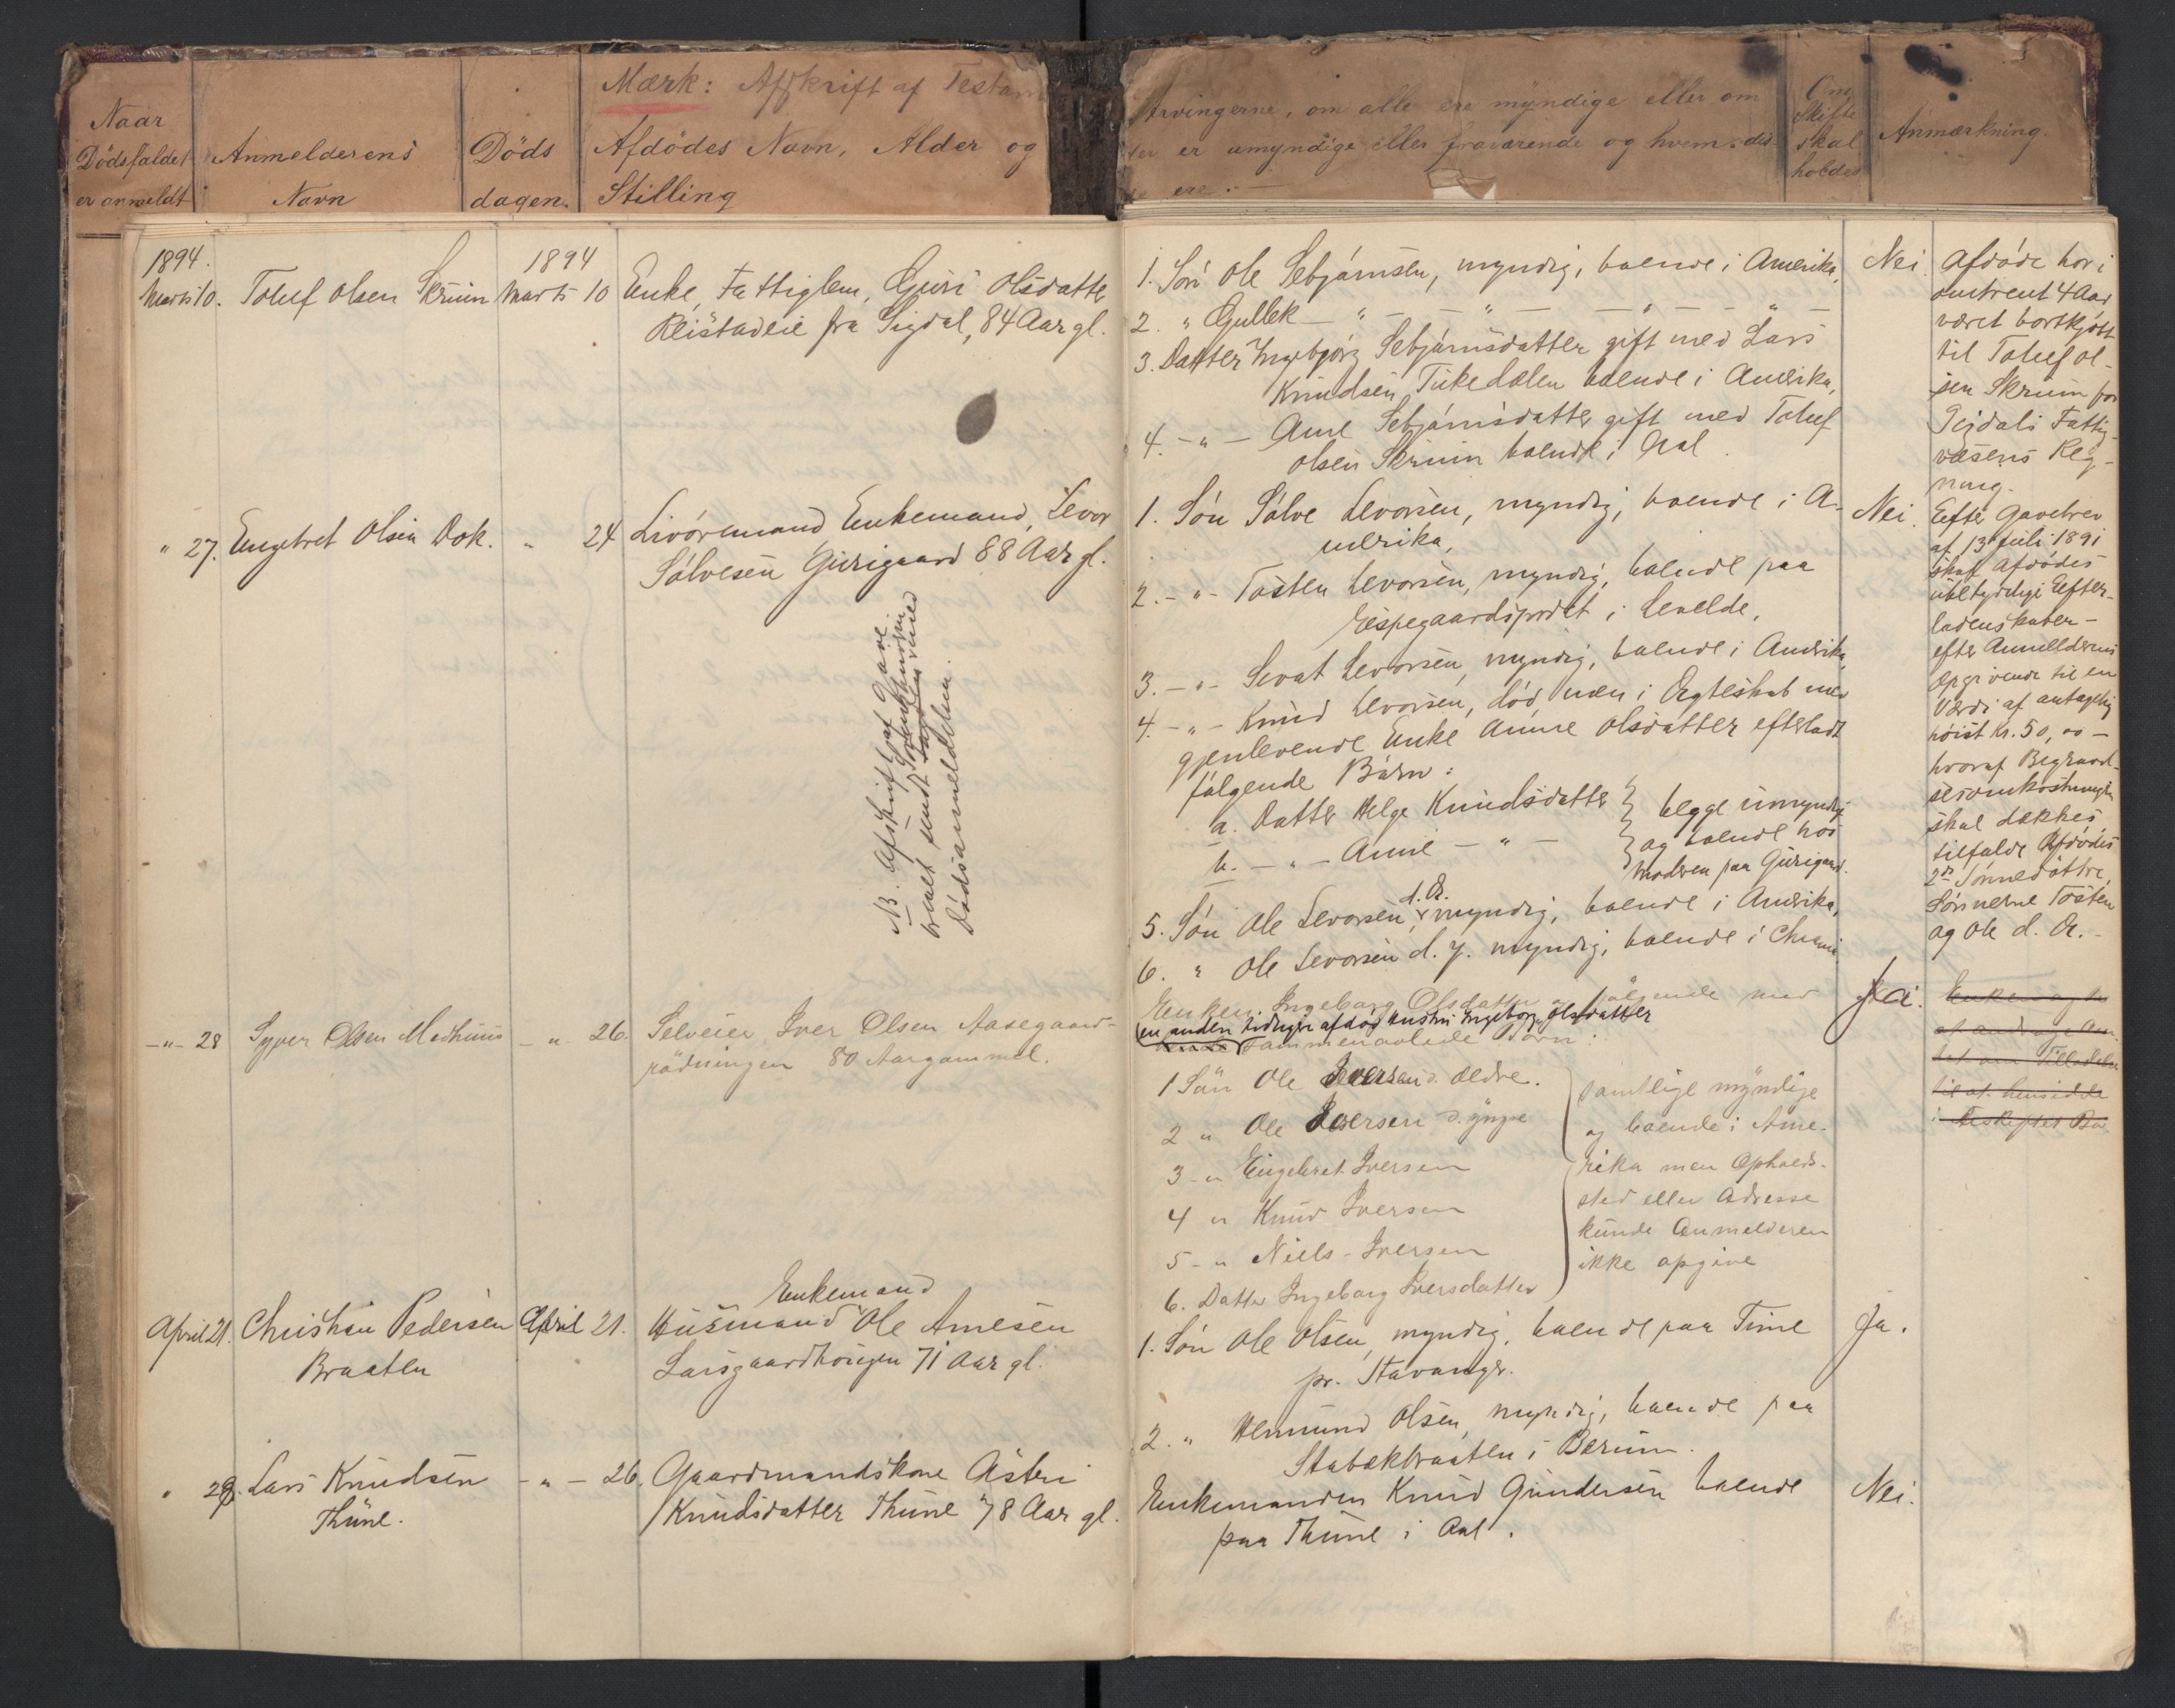 Mærk: Afskrift af Testam
Naar
Dödsfaldet
er anmeldt
Anmelderens
Navn
Döds
dagen.
Afdödes Navn, Alder og
Stilling
Arvingerne, om alle ere myndige eller om
der er umyndige eller fraværende og hvem dis-
se ere.
Om
Skifte
skal
holdes
Anmærkning.
1894.
Marts 10.
Toluf Olsen Skrüin
1894
Marts 10
Enke, Fattiglem, Guri Olsdatter
Reistadeie fra Sigdal, 84 Aar gl.
1. Sön Ole Sebjörnsen, myndig, boende i Amerika,
2. " Gullek — " — " — " — " —
3. Datter Ingebjörg Sebjörnsdatter gift med Lars
Knudsen Tükedalen boende i Amerika,
4. - " - Anne Sebjörnsdatter gift med Toluf
Olsen Skrüin boende i Aal.
Nei.
Afdöde har i
omtrent 4 Aar
været bortkjöbt
til Toluf Ol-
sen Skrüin for
Sigdals Fattig-
væsens Reg-
ning.
" 27. Engebret Olsen Dok.
" 24
Livöremand Enkemand, Levor
Sölvesen Gürigaard 88 Aar gl.
NB. Afskrift af Gave
brevet sendt Sorenskriveren med
Dödsanmeldelsen.
1. Sön Sölve Levorsen, myndig, boende i A-
merika,
2. - " - Tosten Levorsen, myndig, boende paa
Espegaardsjordet i Leveld,
3. - " - Sevat Levorsen, myndig, boende i Amerika
4. - " - Knud Levorsen, död men i Ægteskab med
gjenlevende Enke Anne Olsdatter efterladt
fölgende Börn:
a. Datter Helge Knudsdatter
b. - " - Anne - " -
begge umyndige
og boende hos
Moderen paa Gürigaard.
5. Sön Ole Levorsen, d. Æ. myndig, boende i Amerika,
6. " Ole Levorsen d. y. myndig, boende i Chrania
Nei.
Efter Gavebrev
af 13 Juli 1891
skal Afdödes
übetydelige Efter-
ladenskaber —
efter Anmelderens
Opgivende til en
Værdi af antagelig
höist Kr. 50,00 —
hvoraf Begravel-
sesomkostningerne
skal dækkes,
tilfalde Afdödes
2de Sönnedöttre,
Sönnerne Tosten
og Ole d. Æ. -
- " - 28 Syver Olsen Medhuus
- " 26.
Selveier Iver Olsen Aasegaard-
rödningen 80 Aar gammel.
Enken Ingeborg Olsdatter og fölgende med
en anden tidligere afdöd Hustru Ingeborg Olsdatter
sammenavlede Börn:
1 Sön Ole Iversen d. ældre.
2 " Ole Iversen d. yngre
3 - " Engebret Iversen
4 " Knud Iversen
5 - " Niels Iversen
6. Datter Ingeborg Iversdatter
samtlige myndige
og boende i Ame-
rika men Opholds-
sted eller Adresse
kunde Anmelderen
ikke opgive
Ja.
Enken agter
at andrage Am-
tet om Tilladelse
til at hensidde
i uskiftet Bo
April 21. Christian Pedersen
Braaten
April 21.
Enkemand
Hüsmand Ole Arnesen
Larsgaardhougen 71 Aar gl.
1. Sön Ole Olsen, myndig, boende paa Time
pr. Stavanger.
2. " Hermund Olsen, myndig, boende paa
Stabækbraaten i Bærum.
Ja.
" 28. Lars Knudsen
Thüne.
- " - 26.
Gaardmandskone Asteri
Knudsdatter Thüne 78 Aar gl.
Enkemanden Knud Gundersen boende
paa Thüne i Aal.
Nei.